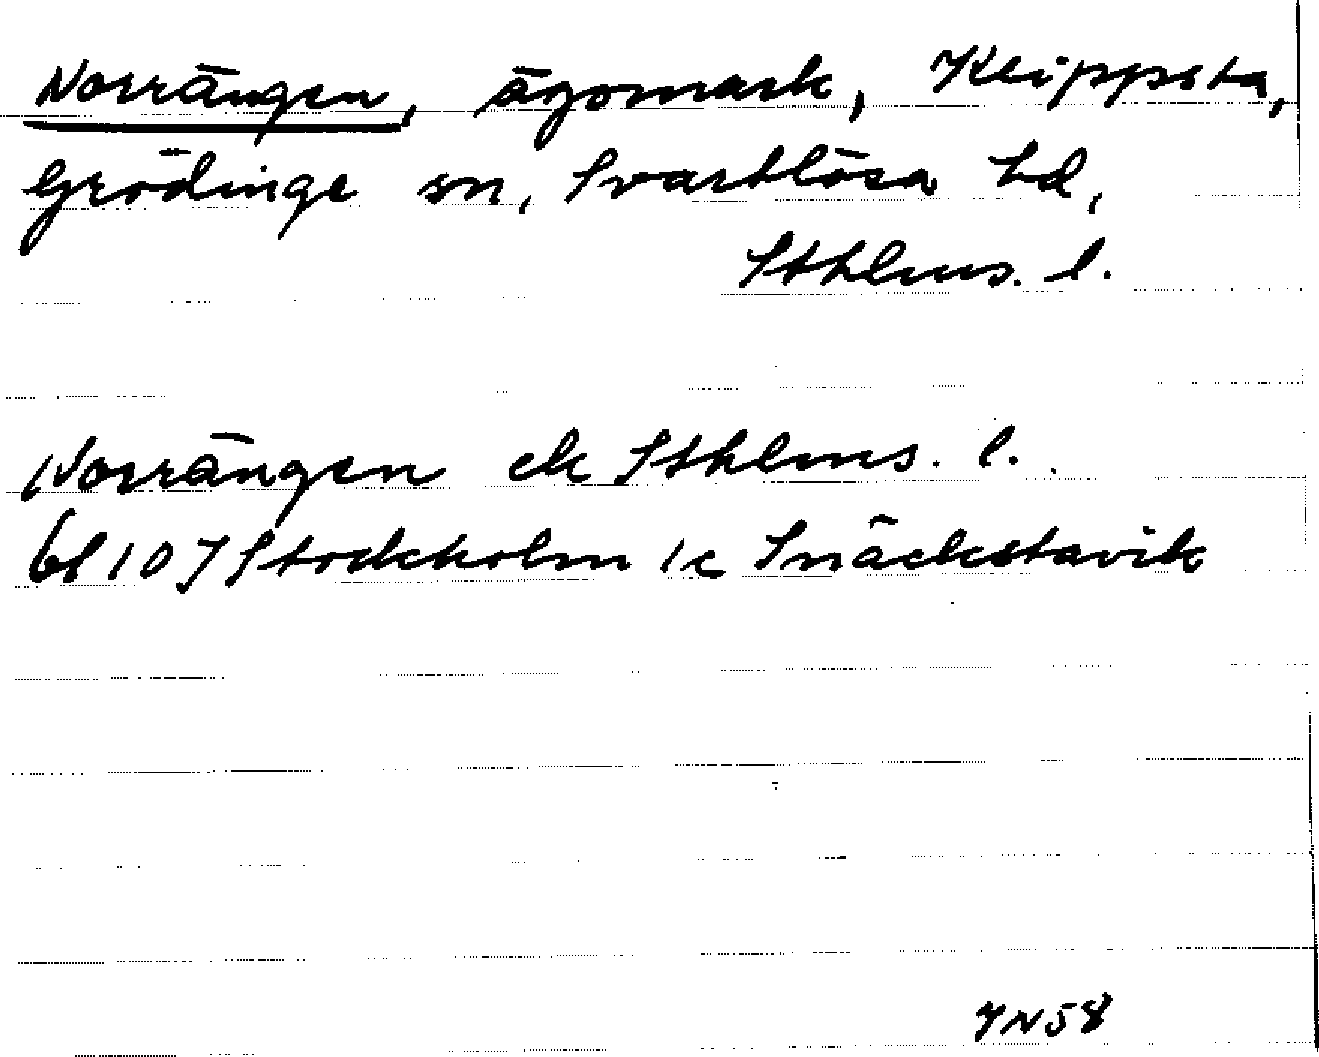 Norrängen, ägomark, Kleippsta,
Grödinge sn, Svartlösa hd,
Sthlms. l.
Norrängen ek Sthlms. l.
bl 10 J Stockholm 1c Snäckstavik
JN58